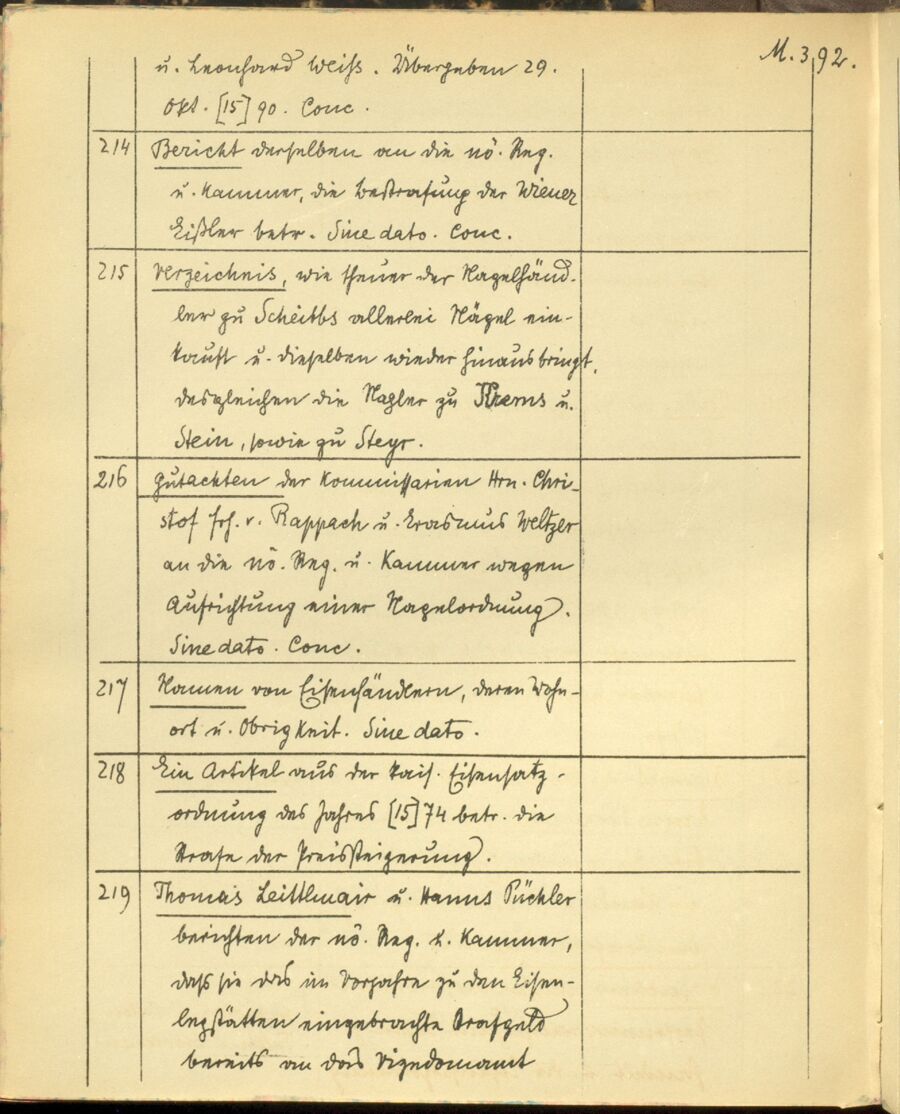 M. 3,92.
u. Leonhard Weiß. Übergeben 29.
Okt. [15]90. Conc.
214 Bericht derselben an die nö. Reg.
u. Kammer, die Bestrafung der Wiener
Eißler betr. Sine dato. Conc.
215 Verzeichnis, wie theuer der Nagelhänd-
ler zu Scheibbs allerlei Nägel ein-
kauft u. dieselben wieder hinausbringt,
desgleichen die Nagler zu Krems u.
Stein, sowie zu Steyr.
216 Gutachten der Kommissarien Hrn. Chri-
stof frh. v. Rappach u. Erasmus Weltzer
an die nö. Reg. u. Kammer wegen
Aufrichtung einer Nagelordnung.
Sine dato. Conc.
217 Namen von Eisenhändlern, deren Wohn-
ort u. Obrigkeit. Sine dato.
218 Ein Artikel aus der kais. Eisensatz-
ordnung des Jahres [15]74 betr. die
Strafe der Preissteigerung.
219 Thomas Leittlmair u. Hanns Püchler
berichten der nö. Reg. u. Kammer,
dass sie das im Vorjahre zu den Eisen-
legstätten eingebrachte Strafgeld
bereits an das Vizedomamt